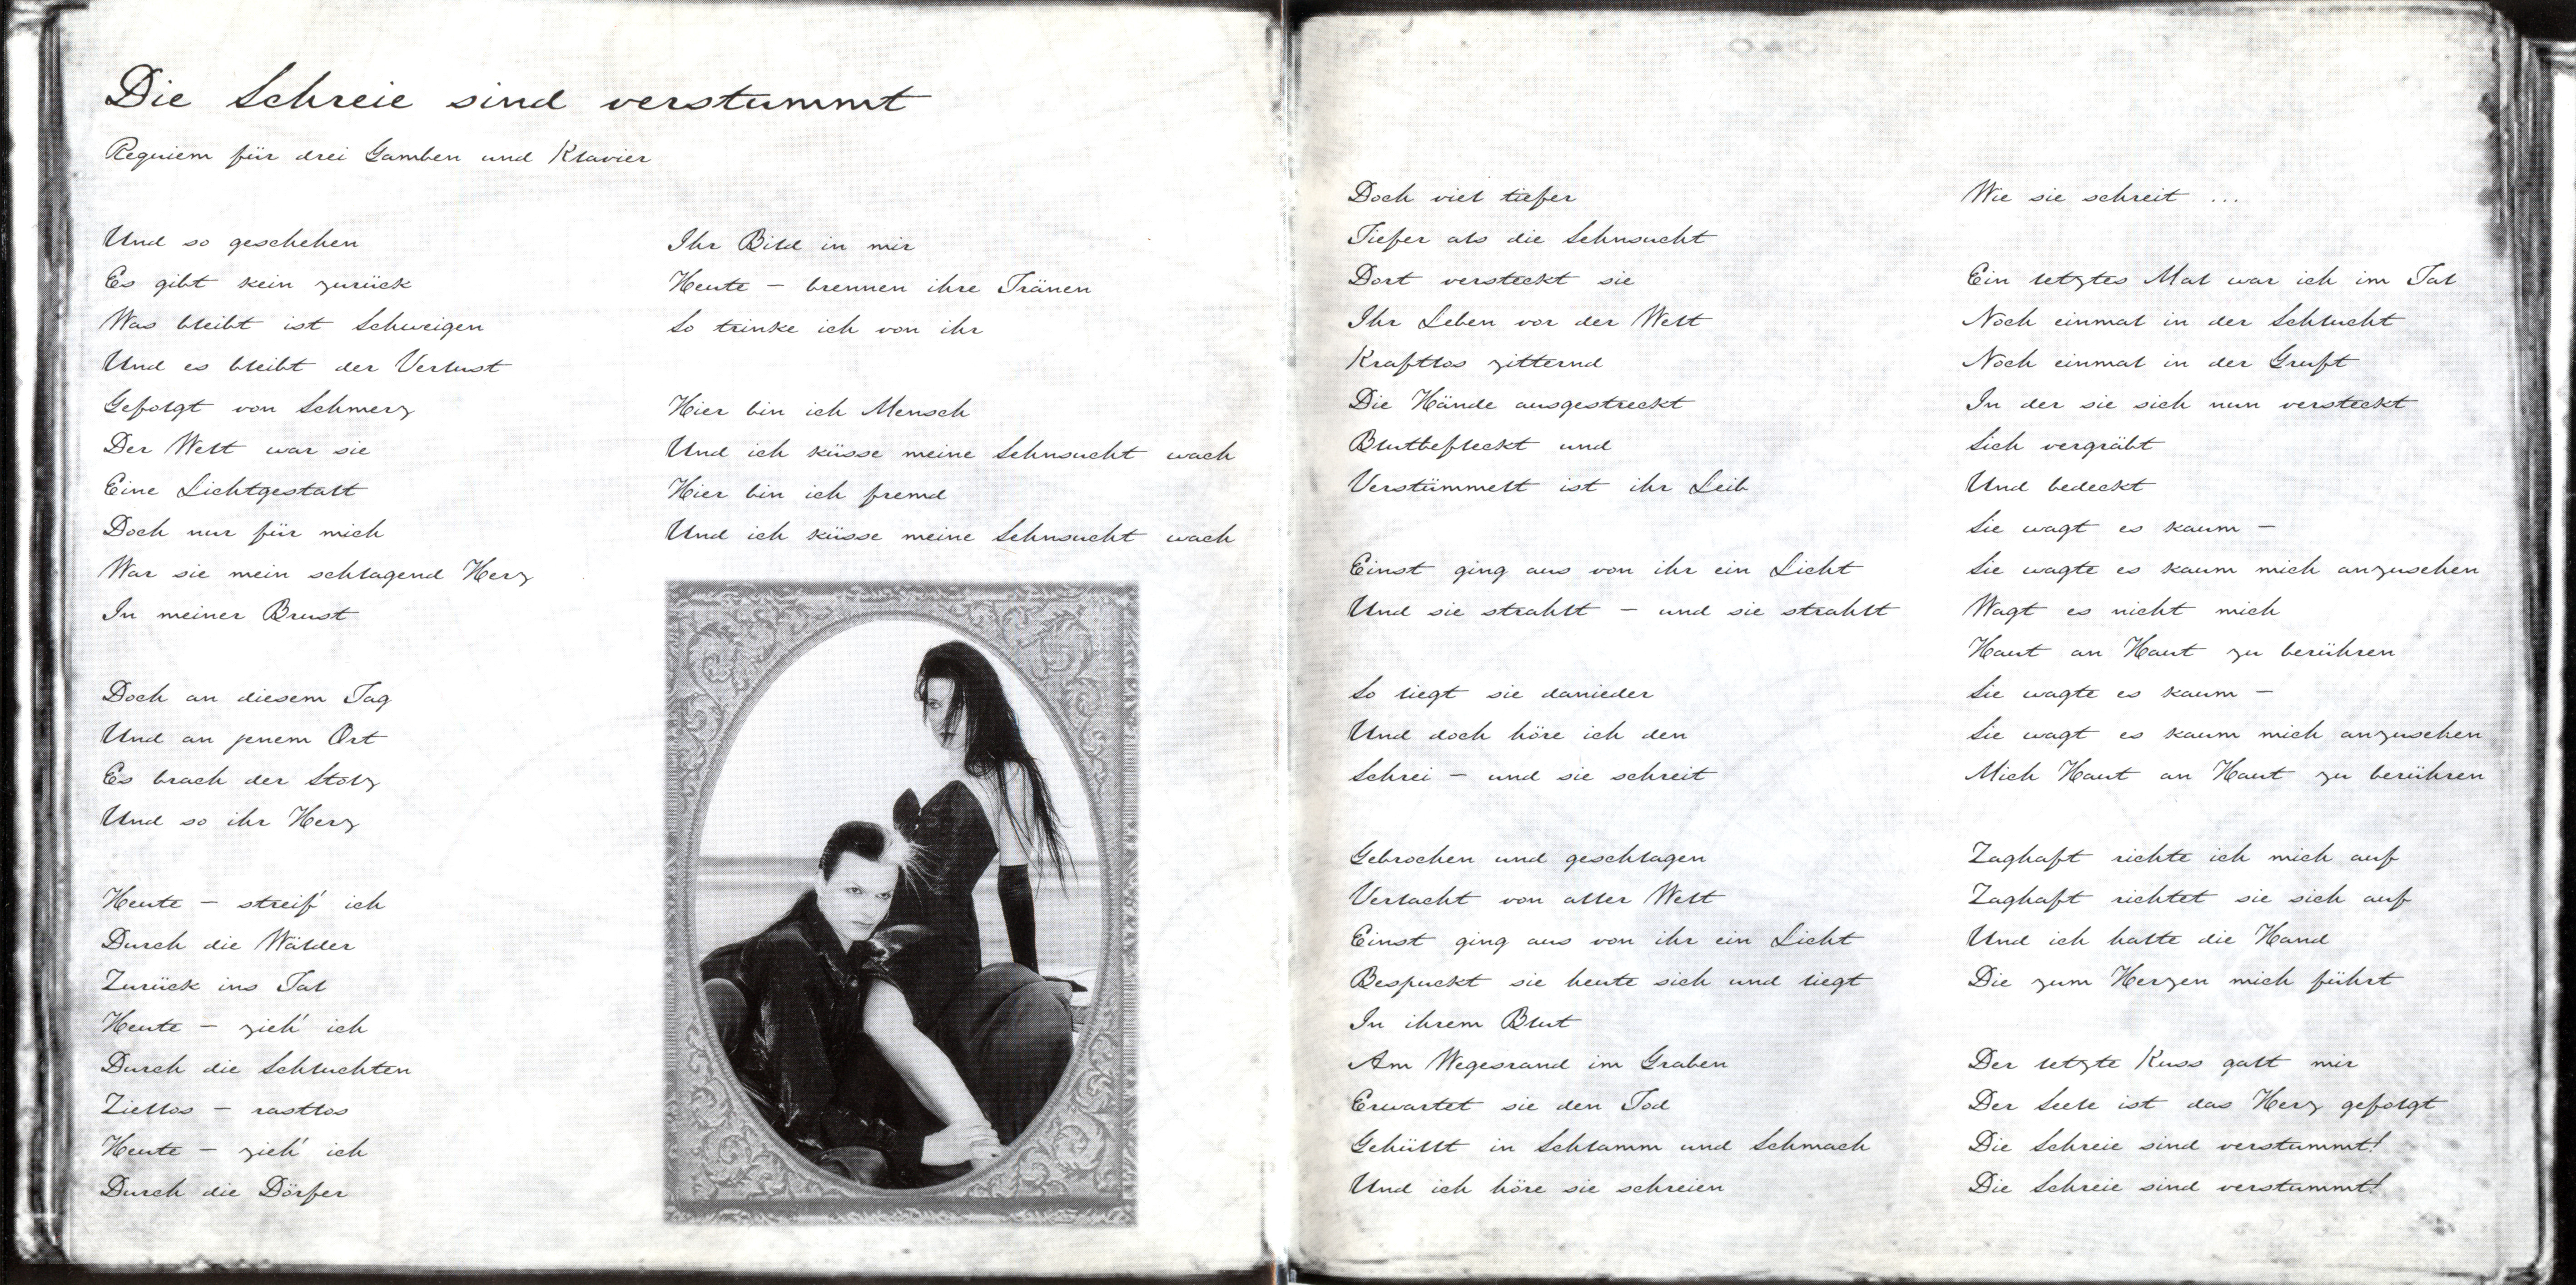 Die Schreie sind verstummt
Requiem für drei Gamben und Klavier
Und so geschehen
Es gibt kein zurück
Was bleibt ist Schweigen
Und es bleibt der Verlust
Gefolgt von Schmerz
Der Welt war sie
Eine Lichtgestalt
Doch nur für mich
War sie mein schlagend Herz
In meiner Brust
Doch an diesem Tag
Und an jenem Ort
Es brach der Stolz
Und so ihr Herz
Heute – streif' ich
Durch die Wälder
Zurück ins Tal
Heute – zieh' ich
Durch die Schluchten
Ziellos – rastlos
Heute – zieh' ich
Durch die Dörfer
Ihr Bild in mir
Heute – brennen ihre Tränen
So trinke ich von ihr
Hier bin ich Mensch
Und ich küsse meine Sehnsucht wach
Hier bin ich fremd
Und ich küsse meine Sehnsucht wach
Doch viel tiefer
Tiefer als die Sehnsucht
Dort versteckt sie
Ihr Leben vor der Welt
Kraftlos zitternd
Die Hände ausgestreckt
Blutbefleckt und
Verstümmelt ist ihr Leib
Einst ging aus von ihr ein Licht
Und sie strahlt – und sie strahlt
So liegt sie danieder
Und doch höre ich den
Schrei – und sie schreit
Gebrochen und geschlagen
Verlacht von aller Welt
Einst ging aus von ihr ein Licht
Bespuckt sie heute sich und liegt
In ihrem Blut
Am Wegesrand im Graben
Erwartet sie den Tod
Gehüllt in Schlamm und Schmach
Und ich höre sie schreien
Wie sie schreit ...
Ein letztes Mal war ich im Tal
Noch einmal in der Schlucht
Noch einmal in der Gruft
In der sie sich nun versteckt
Sich vergräbt
Und bedeckt
Sie wagt es kaum –
Sie wagte es kaum mich anzusehen
Wagt es nicht mich
Haut an Haut zu berühren
Sie wagte es kaum –
Sie wagt es kaum mich anzusehen
Mich Haut an Haut zu berühren
Zaghaft richte ich mich auf
Zaghaft richtet sie sich auf
Und ich halte die Hand
Die zum Herzen mich führt
Der letzte Kuss galt mir
Der Seele ist das Herz gefolgt
Die Schreie sind verstummt!
Die Schreie sind verstummt!